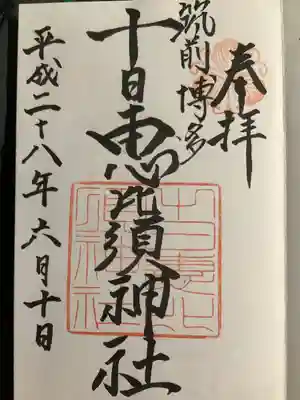 奉拝
筑前博多
十日恵比須神社
平成二十八年六月十日